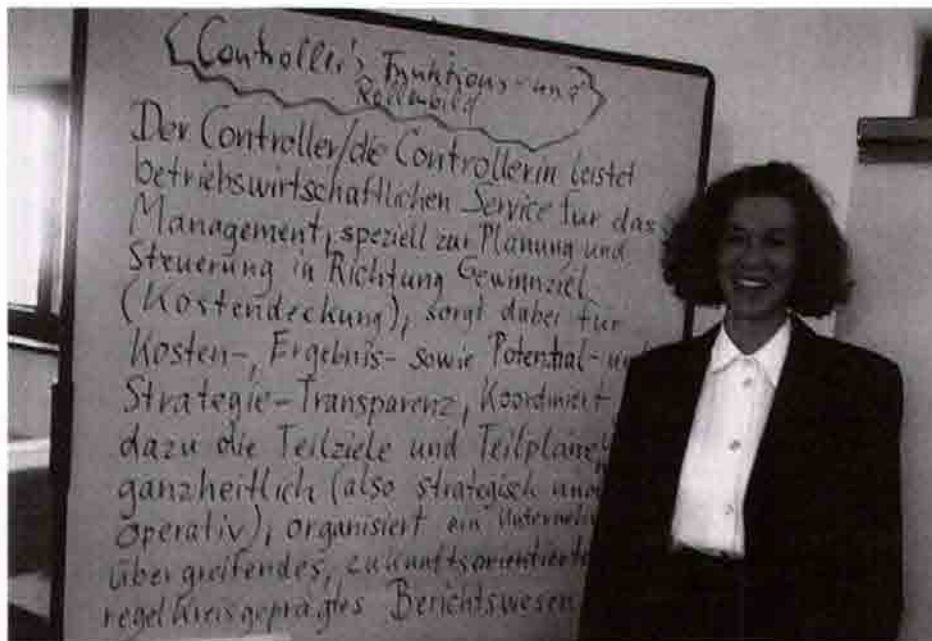 Controller's Funktions- und
Rollenbild
Der Controller/die Controllerin leistet
betriebswirtschaftlichen Service für das
Management, speziell zur Planung und
Steuerung in Richtung Gewinnziel
(Kostendeckung), sorgt dabei für
Kosten-, Ergebnis- sowie Potential- und
Strategie-Transparenz, Koordiniert
dazu die Teilziele und Teilpläne
ganzheitlich (also strategisch und
operativ), organisiert ein
übergreifendes, zukunftsorientiertes
regelkreisgeprägtes Berichtswesen